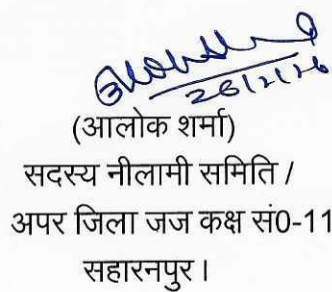 28/2/26
(आलोक शर्मा)
सदस्य नीलामी समिति /
अपर जिला जज कक्ष सं0-11
सहारनपुर।